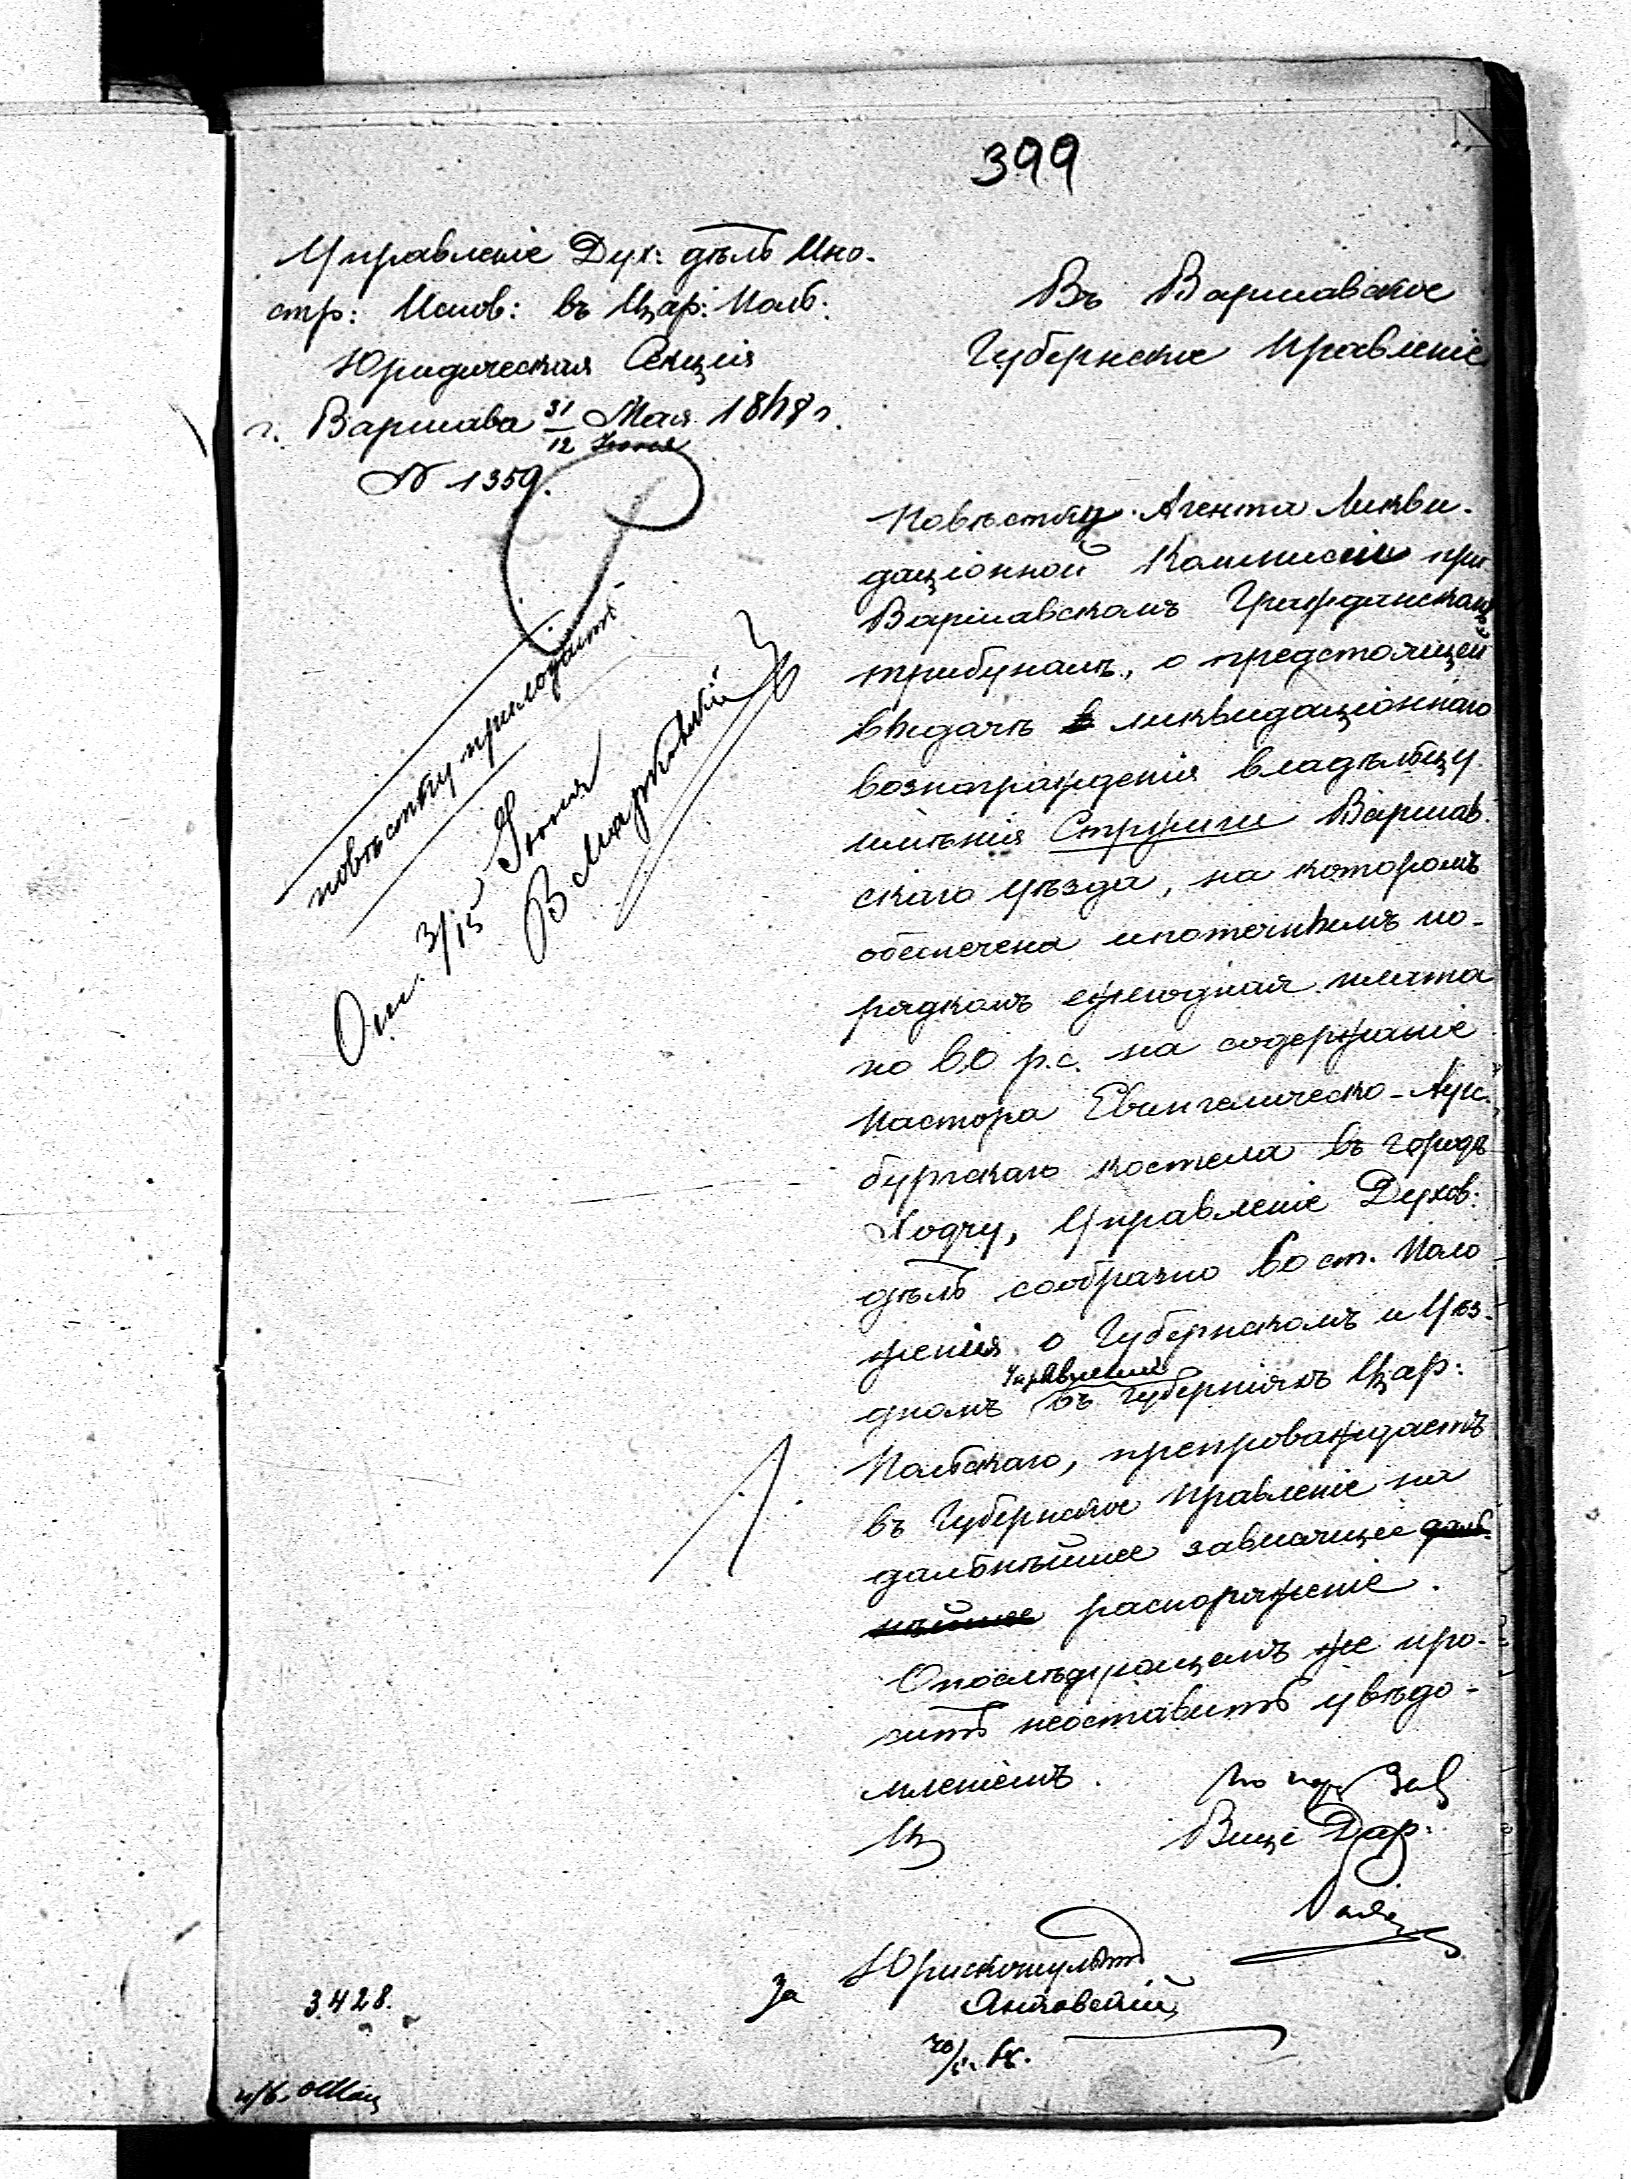 399
Управленіе Дух: дѣлъ Ино-
стр: Испов: въ Цар: Поль:
Юридическая Секція
г. Варшава 31/12 Мая/Іюня 1868 г.
N 1359.
Въ Варшавское
Губернское Правленіе
повѣстку приложить
Отп. 3/15 Іюня
Повѣстку Агента Ликви-
даціонной Коммисіи при
Варшавскомъ Гражданскомъ
трибуналѣ, о предстоящей
выдачѣ ликвидаціоннаго
вознагражденія владѣльцу
имѣнія Стружи Варшав-
скаго уѣзда, на которомъ
обеспечена ипотечнымъ по-
рядкомъ ежегодная плата
по 60 р.с. на содержаніе
Пастора Евангелическо-Аугс-
бургскаго костела въ городѣ
Управленіе Духов:
дѣлъ сообразно 60 ст. Поло
женія о Губернскомъ и Уѣз-
дномъ Управленіи въ Губерніяхъ Цар:
Польскаго, препровождаетъ
въ Губернское Правленіе на
дальнѣйшее зависящее даль-
нѣйшее распоряженіе.
О послѣдующемъ же про-
ситъ неоставить увѣдо-
мленіемъ.
Вице Дир:
За Юрисконсультъ
Янковскій
3428.